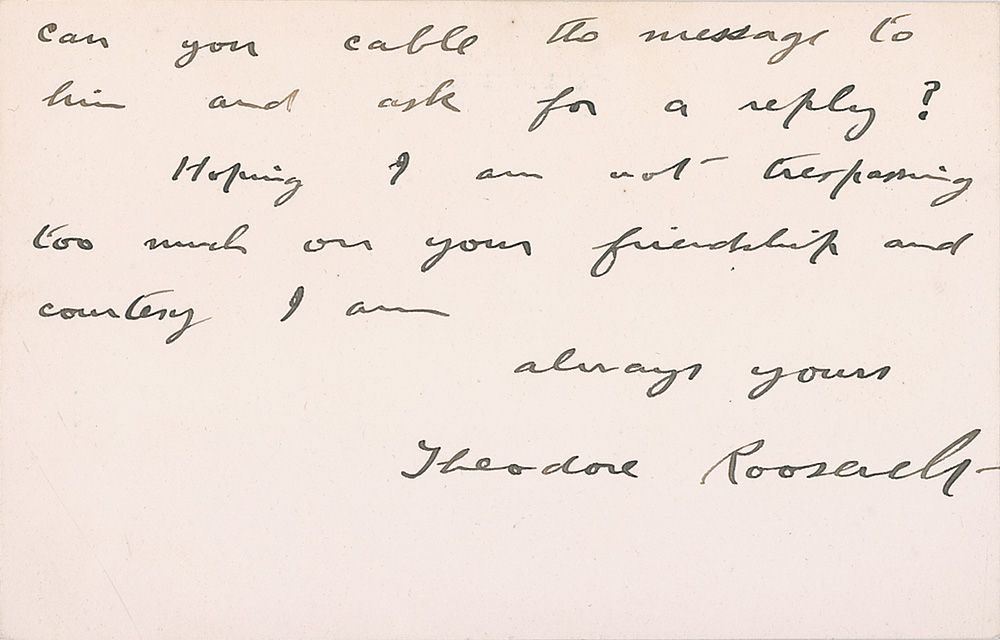 can you cable the message to
him and ask for a reply?
Hoping I am not trespassing
too much on your friendship and
courtesy I am
always yours
Theodore Roosevelt